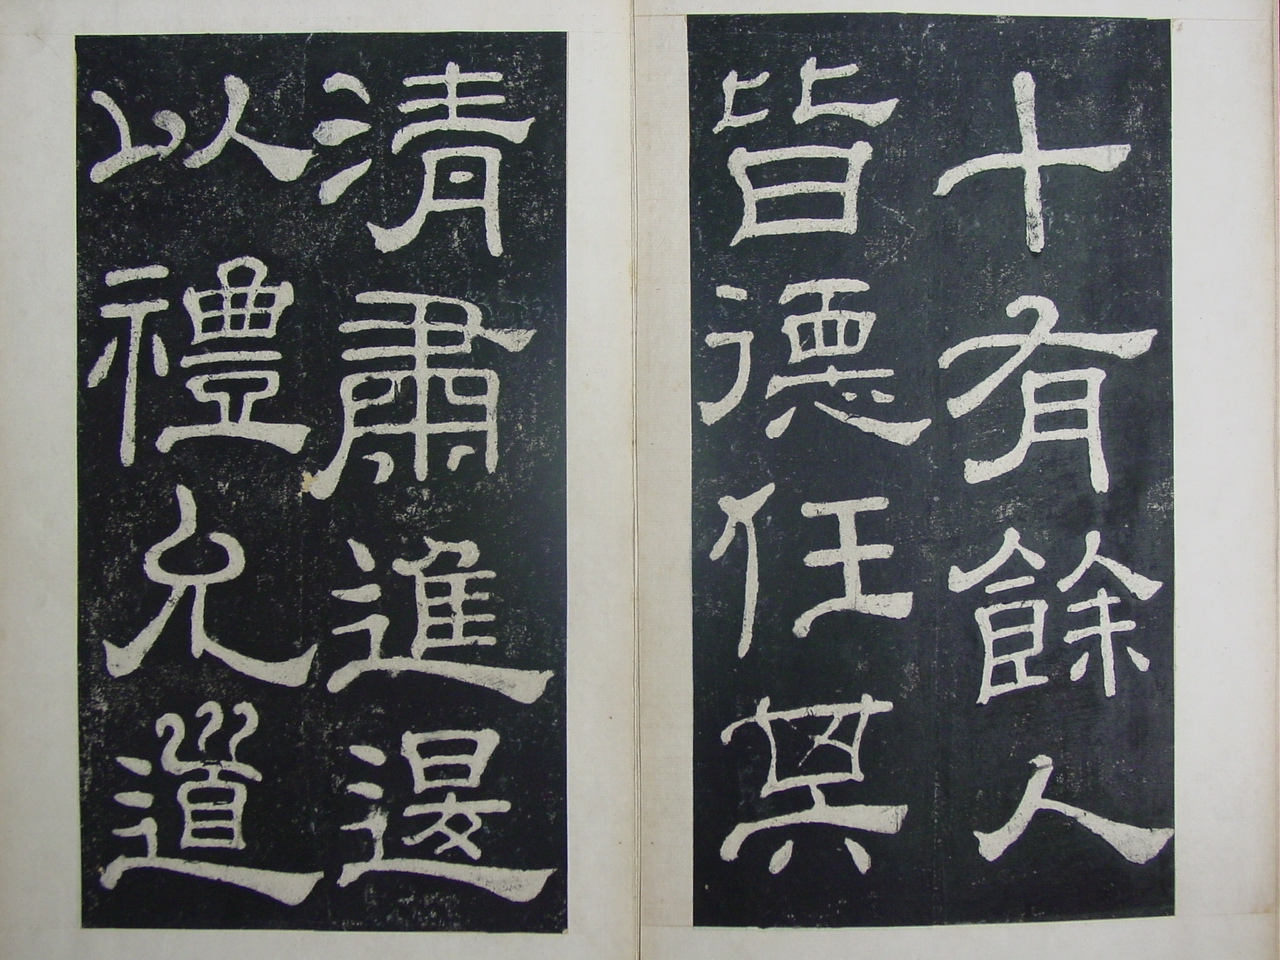 十有餘人
皆德任其
清肅進退
以禮允道